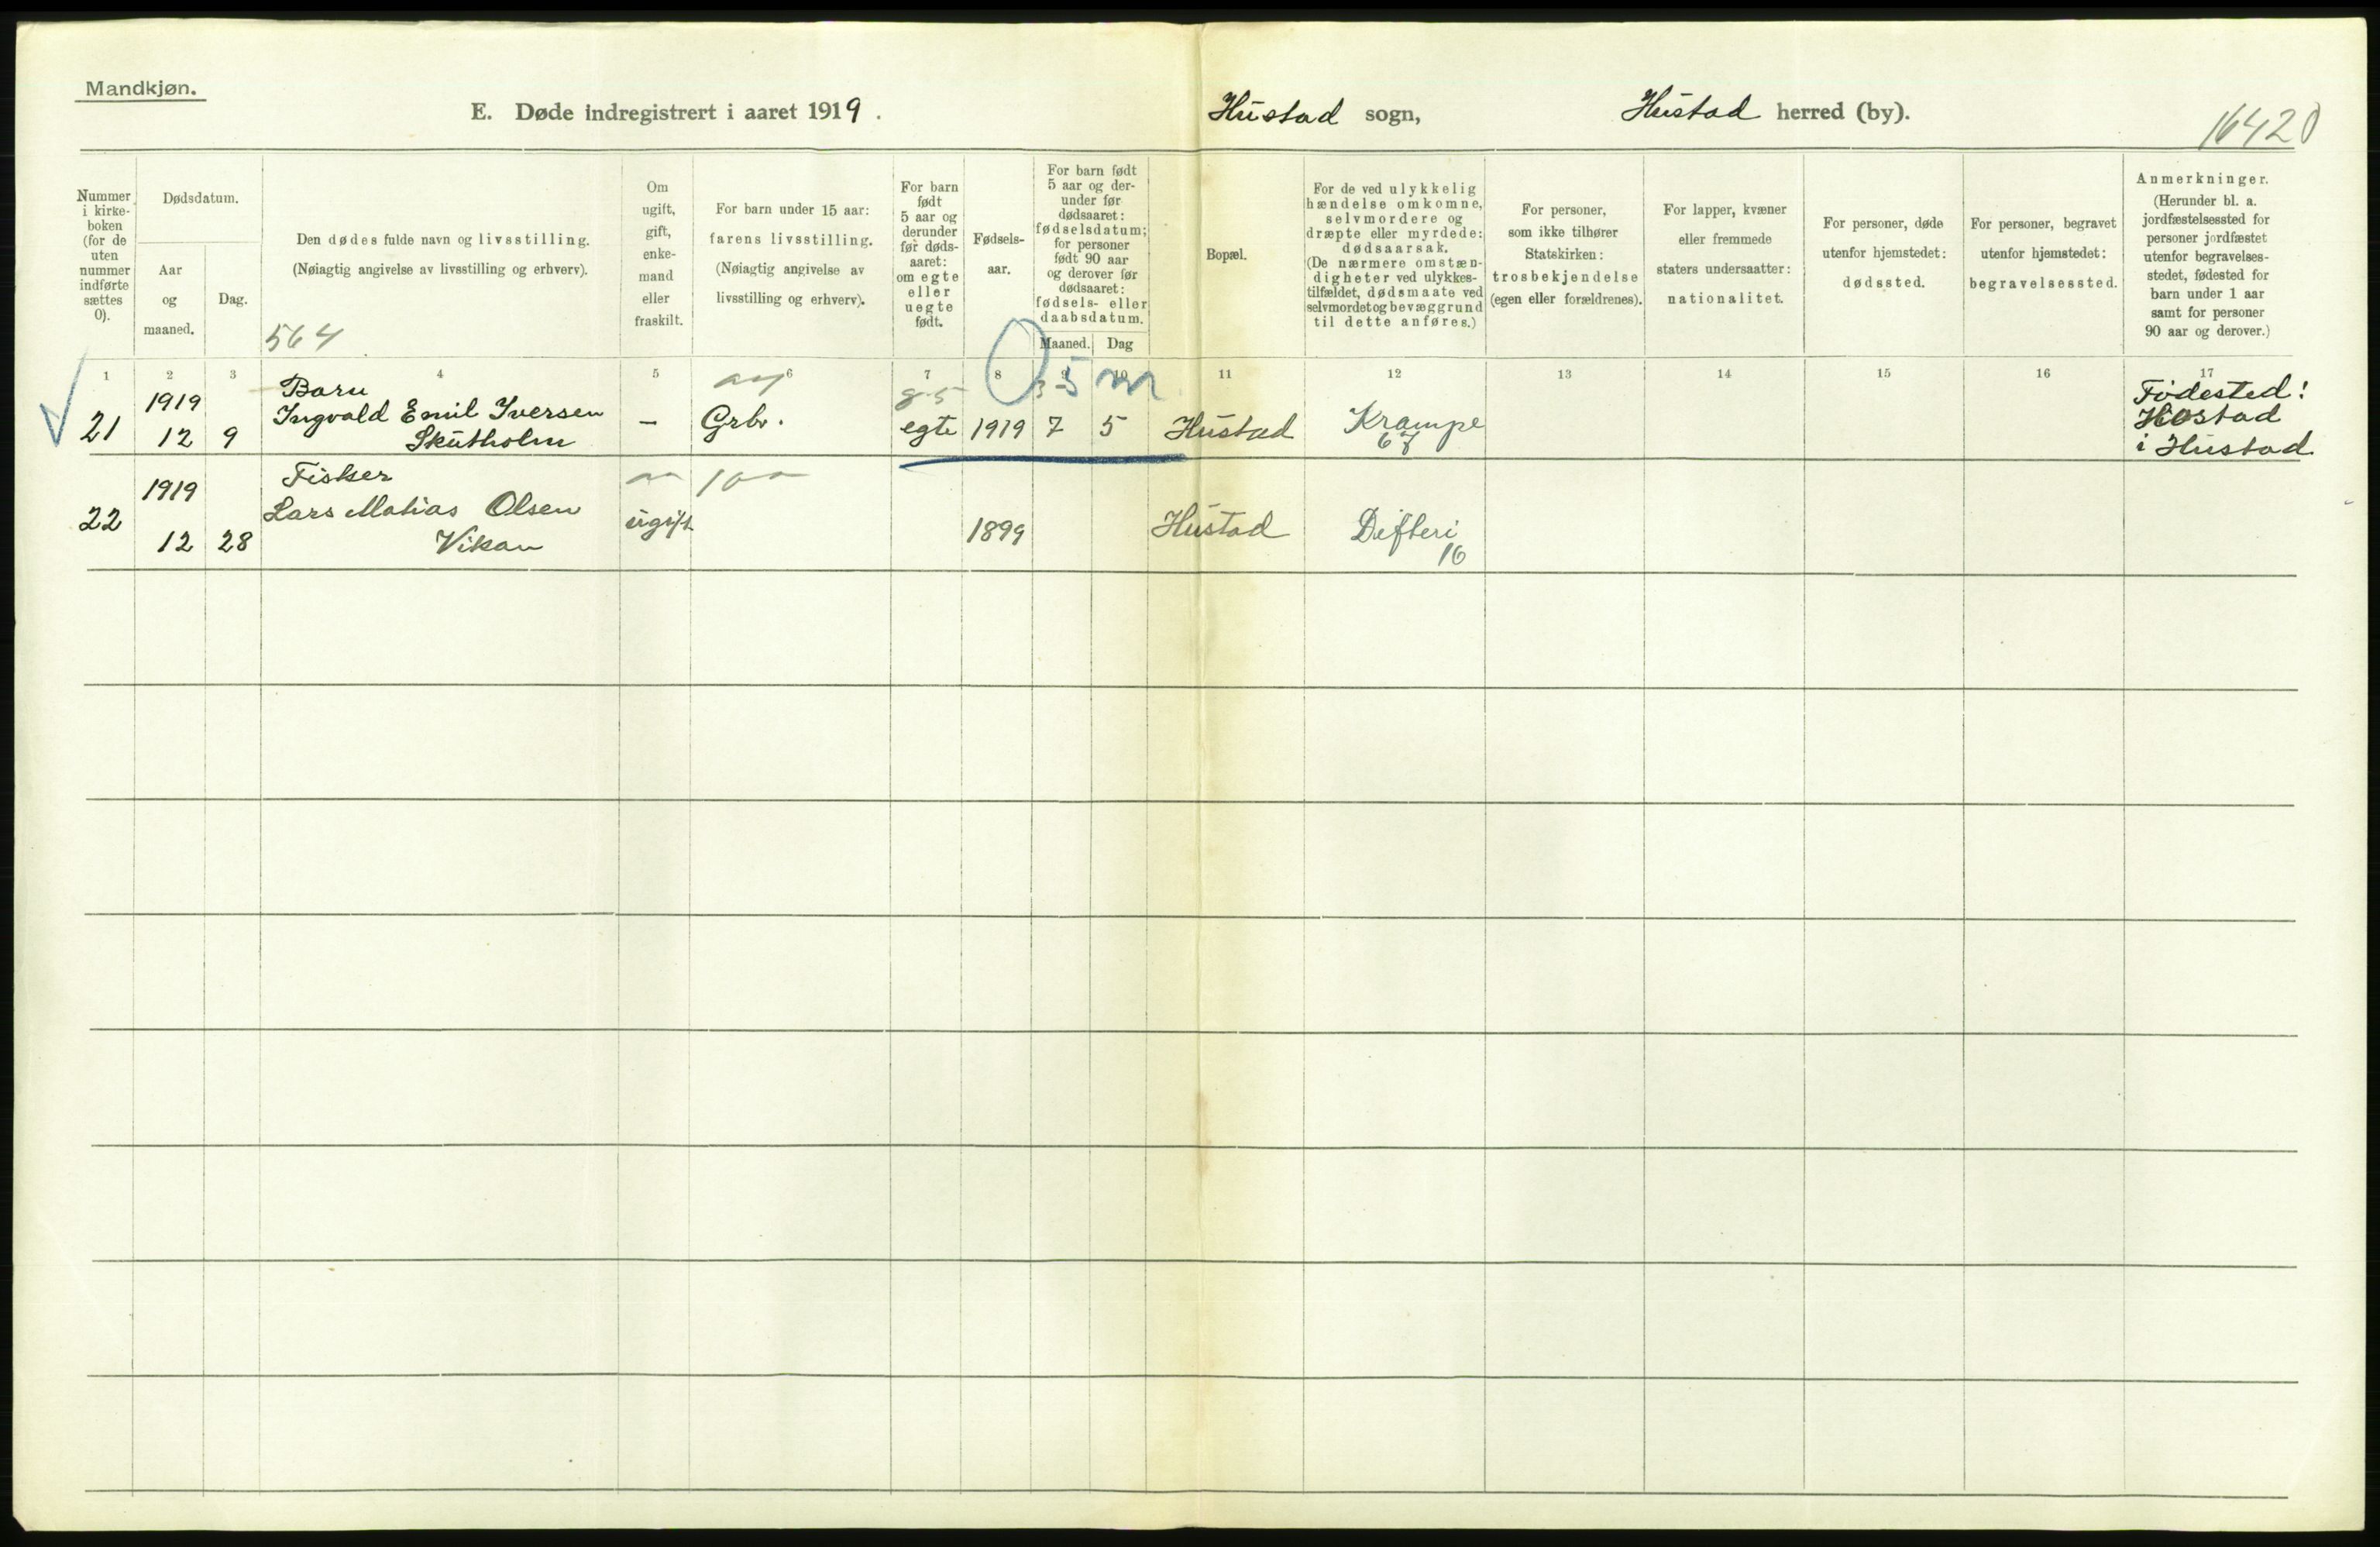 Mandkjøn.
E. Døde indregistrert i aaret 1919.
Hustad sogn,
Hustad herred (by).
16420
Nummer i kirke-
boken
(for de
uten
nummer
indførte
sættes
0).
Dødsdatum.
Aar
og
maaned.
Dag.
Den dødes fulde navn og livsstilling.
(Nøiagtig angivelse av livsstilling og erhverv).
564
Om
ugift,
gift,
enke-
mand
eller
fraskilt.
For barn under 15 aar:
farens livsstilling.
(Nøiagtig angivelse av
livsstilling og erhverv).
For barn
født
5 aar og
derunder
før døds-
aaret:
om egte
eller
uegte
født.
Fødsels-
aar.
For barn født
5 aar og der-
under før
dødsaaret:
fødselsdatum;
for personer
født 90 aar
og derover før
dødsaaret:
fødsels- eller
daabsdatum.
Maaned. Dag
Bopæl.
For de ved ulykkelig
hændelse omkomne,
selvmordere og
dræpte eller myrdede:
dødsaarsak.
(De nærmere omstæn-
digheter ved ulykkes-
tilfældet, dødsmaate ved
selvmordet og bevæggrund
til dette anføres.)
For personer,
som ikke tilhører
Statskirken:
trosbekjendelse
(egen eller forældrenes).
For lapper, kvæner
eller fremmede
staters undersaatter:
nationalitet.
For personer, døde
utenfor hjemstedet:
dødssted.
For personer, begravet
utenfor hjemstedet:
begravelsessted.
Anmerkninger.
(Herunder bl. a.
jordfæstelsessted for
personer jordfæstet
utenfor begravelses-
stedet, fødested for
barn under 1 aar
samt for personer
90 aar og derover.)
1 2 3 4 5 6 7 8 9 10 11 12 13 14 15 16 17
1919 Barn g. 5 5 m Fødested:
21 12 9 Ingvald Emil Iversen - Grbr. egte 1919 7 5 Hustad Krampe Hostad
Skutholm 67 i Hustad
1919 Fisker
22 Lars Matias Olsen ugift 1899 Hustad Difteri
12 28 Vikan 16